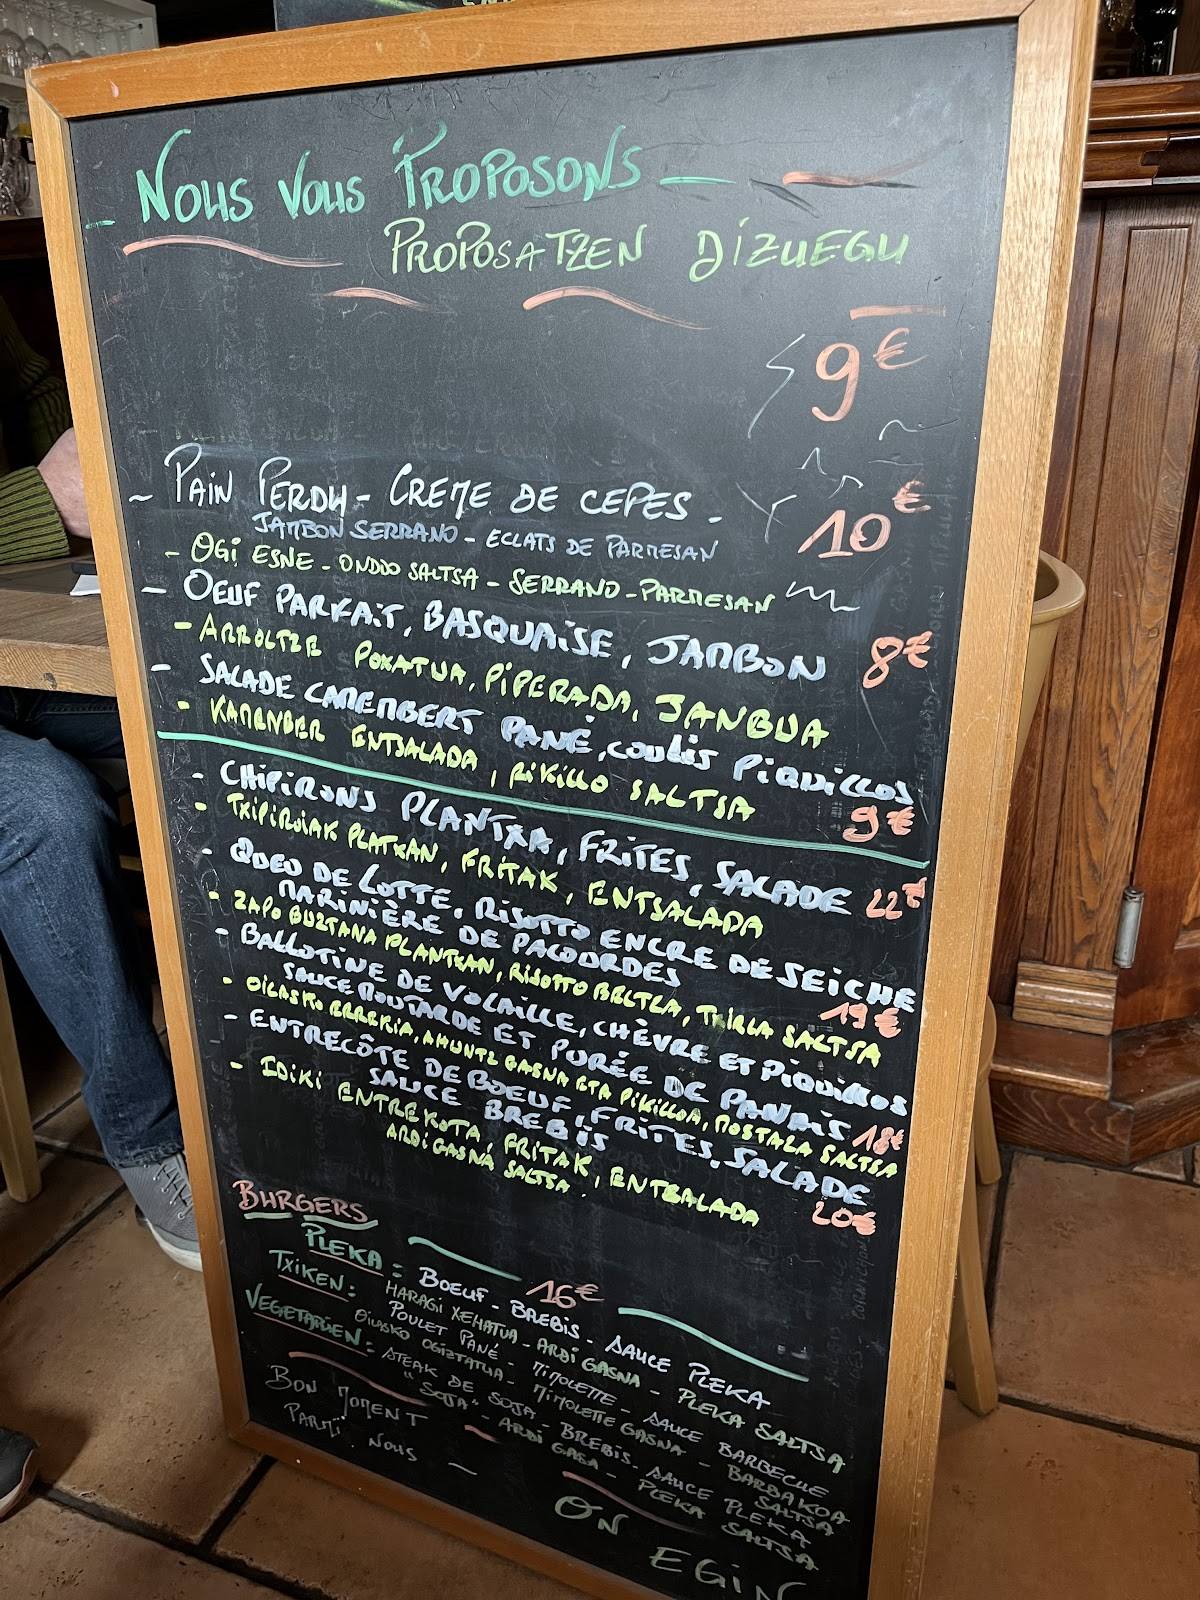 - Nous vous Proposons -
Proposatzen Dizuegu
9€
~ Pain Perdu - Creme de cepes -
Jambon Serrano - Eclats de Parmesan
10€
- Ogi Esne - Onddo Saltsa - Serrano - Parmesan
- Oeuf Parfait, Basquaise, Jambon 8€
- Arroltze Poxatua, Piperada, Janbua
- Salade Camembert Pané, coulis Piquillos
- Kamenber Entsalada, Pikillo Saltsa 9€
- Chipirons Plantxa, Frites, Salade 22€
- Txipiroiak Platxan, Fritak, Entsalada
- Queo de Lotte, Risotto encre de seiche
Marinière de Pacourdes 19€
- Zapo Buztana Plantxan, Risotto Beltza, Txirla Saltsa
- Ballotine de Volaille, chèvre et Piquillos
Sauce Moutarde et Purée de Panais 18€
- Oilasko Brrrkia, Ahuntz Gasna eta Pikilloa, Mostaza Saltsa
- Entrecôte de Boeuf, Frites, Salade
Sauce Brebis 20€
- Idiki Entrekota, Fritak, Entzalada
Ardi Gasna Saltsa.
Burgers 16€
Pleka: Boeuf - Brebis - Sauce Pleka
Haragi Xehatua - Ardi Gasna - Pleka Saltsa
Txiken: Poulet Pané - Mimolette - Sauce Barbecue
Oilasko Ogiztatua - Mimolette Gasna - Barbakoa Saltsa
Vegetarien: Steak de Soja - Brebis - Sauce Pleka
"Soja" - Ardi Gasa - Pleka Saltsa
Bon Moment
Parmi Nous -
On
Egin